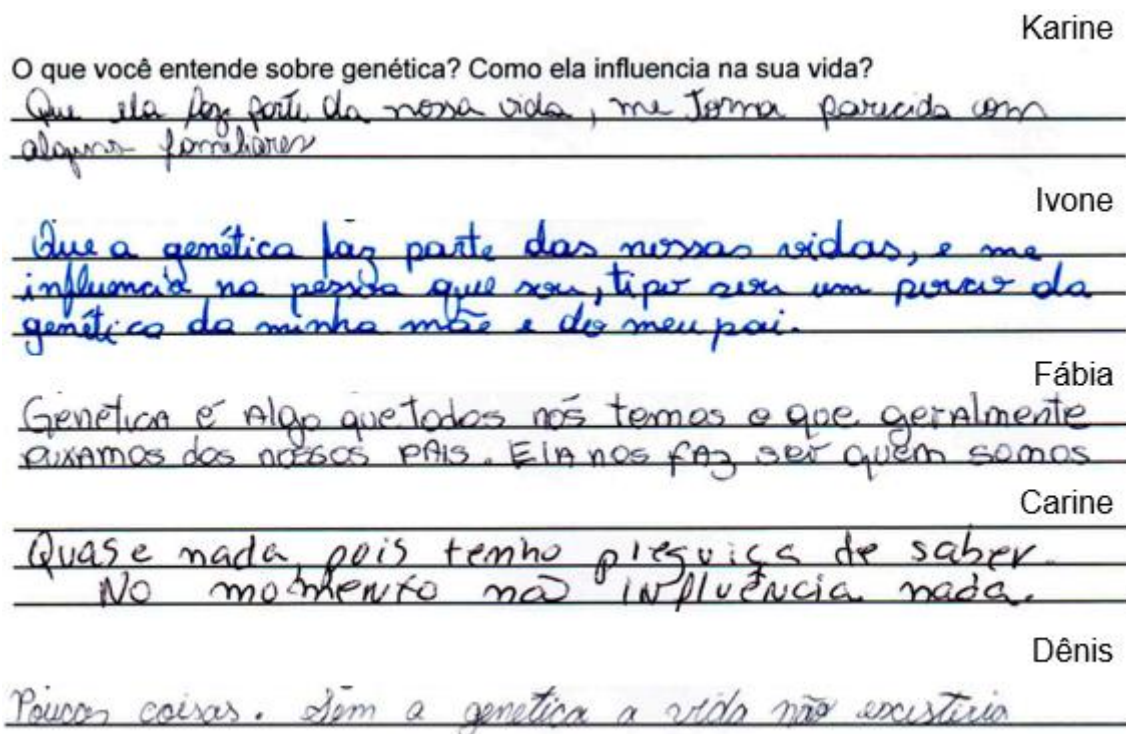 Karine
O que você entende sobre genética? Como ela influencia na sua vida?
Que ela faz parte da nossa vida, me torna parecida com
alguns familiares
Ivone
Que a genética faz parte das nossas vidas, e me
influencia na pessoa que sou, tipo sou um pouco da
genética da minha mãe e do meu pai.
Fábia
Genética é Algo que todos nós temos e que gerAlmente
puxAmos dos nossos pAis. ElA nos fAz ser quem somos
Carine
Quase nada, pois tenho preguiça de saber.
No momento não influência nada.
Dênis
Poucas coisas. Sem a genetica a vida não existiria